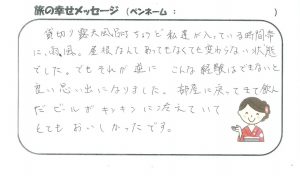 旅の幸せメッセージ（ペンネーム：　　　　）
貸切り露天風呂！ちょうど私達が入っている時間帯
に、強風。屋根なんてあってもなくても変わらない状態
でした。でもそれが逆に こんな経験はできないと
思い出になりました。部屋に戻ってきて飲ん
だビールがキンキンに冷えていて
とてもおいしかったです。